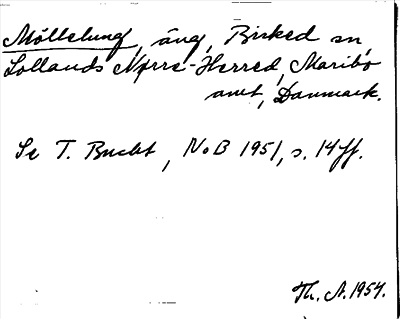 Möllelung, äng, Birket sn
Lollands Nørre-Herred, Maribo
amt, Danmark.
Se T. Bucht, NoB 1951, s. 14 ff.
Th. A. 1954.